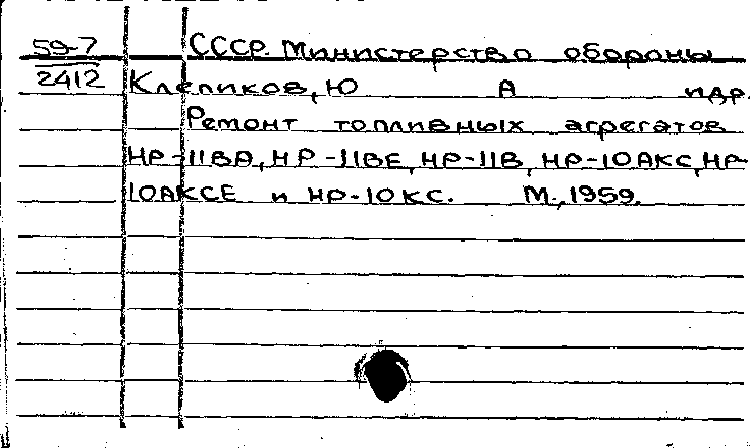 59-7 СССР. Министерство обороны
2412 Клепиков, Ю А и др.
Ремонт топливных агрегатов
НР-11ВА, НР-11ВЕ, НР-11В, НР-10АКС, НР-
10АКСЕ и НР-10КС. М., 1959.